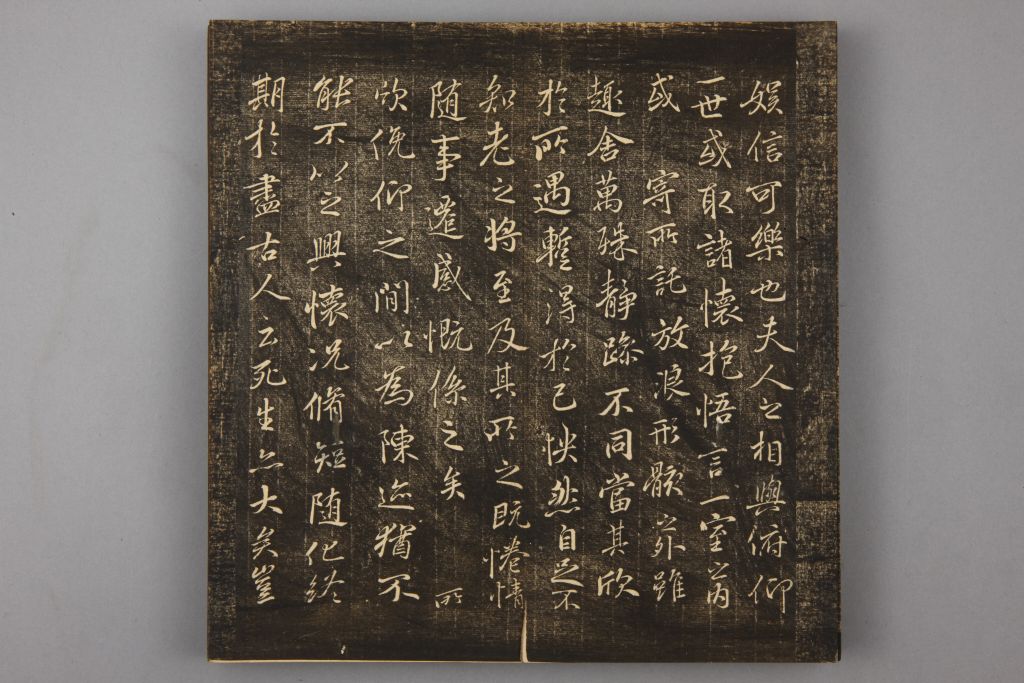 娛信可樂也夫人之相與俯仰
一世或取諸懷抱悟言一室之內
或寄所託放浪形骸之外雖
趣舍萬殊靜躁不同當其欣
於所遇蹔得於己怏然自足不
知老之將至及其所之既惓情
随事遷感慨係之矣所
欣俛仰之間以為陳迹猶不
能不以之興懷況脩短随化終
期於盡古人云死生亦大矣豈